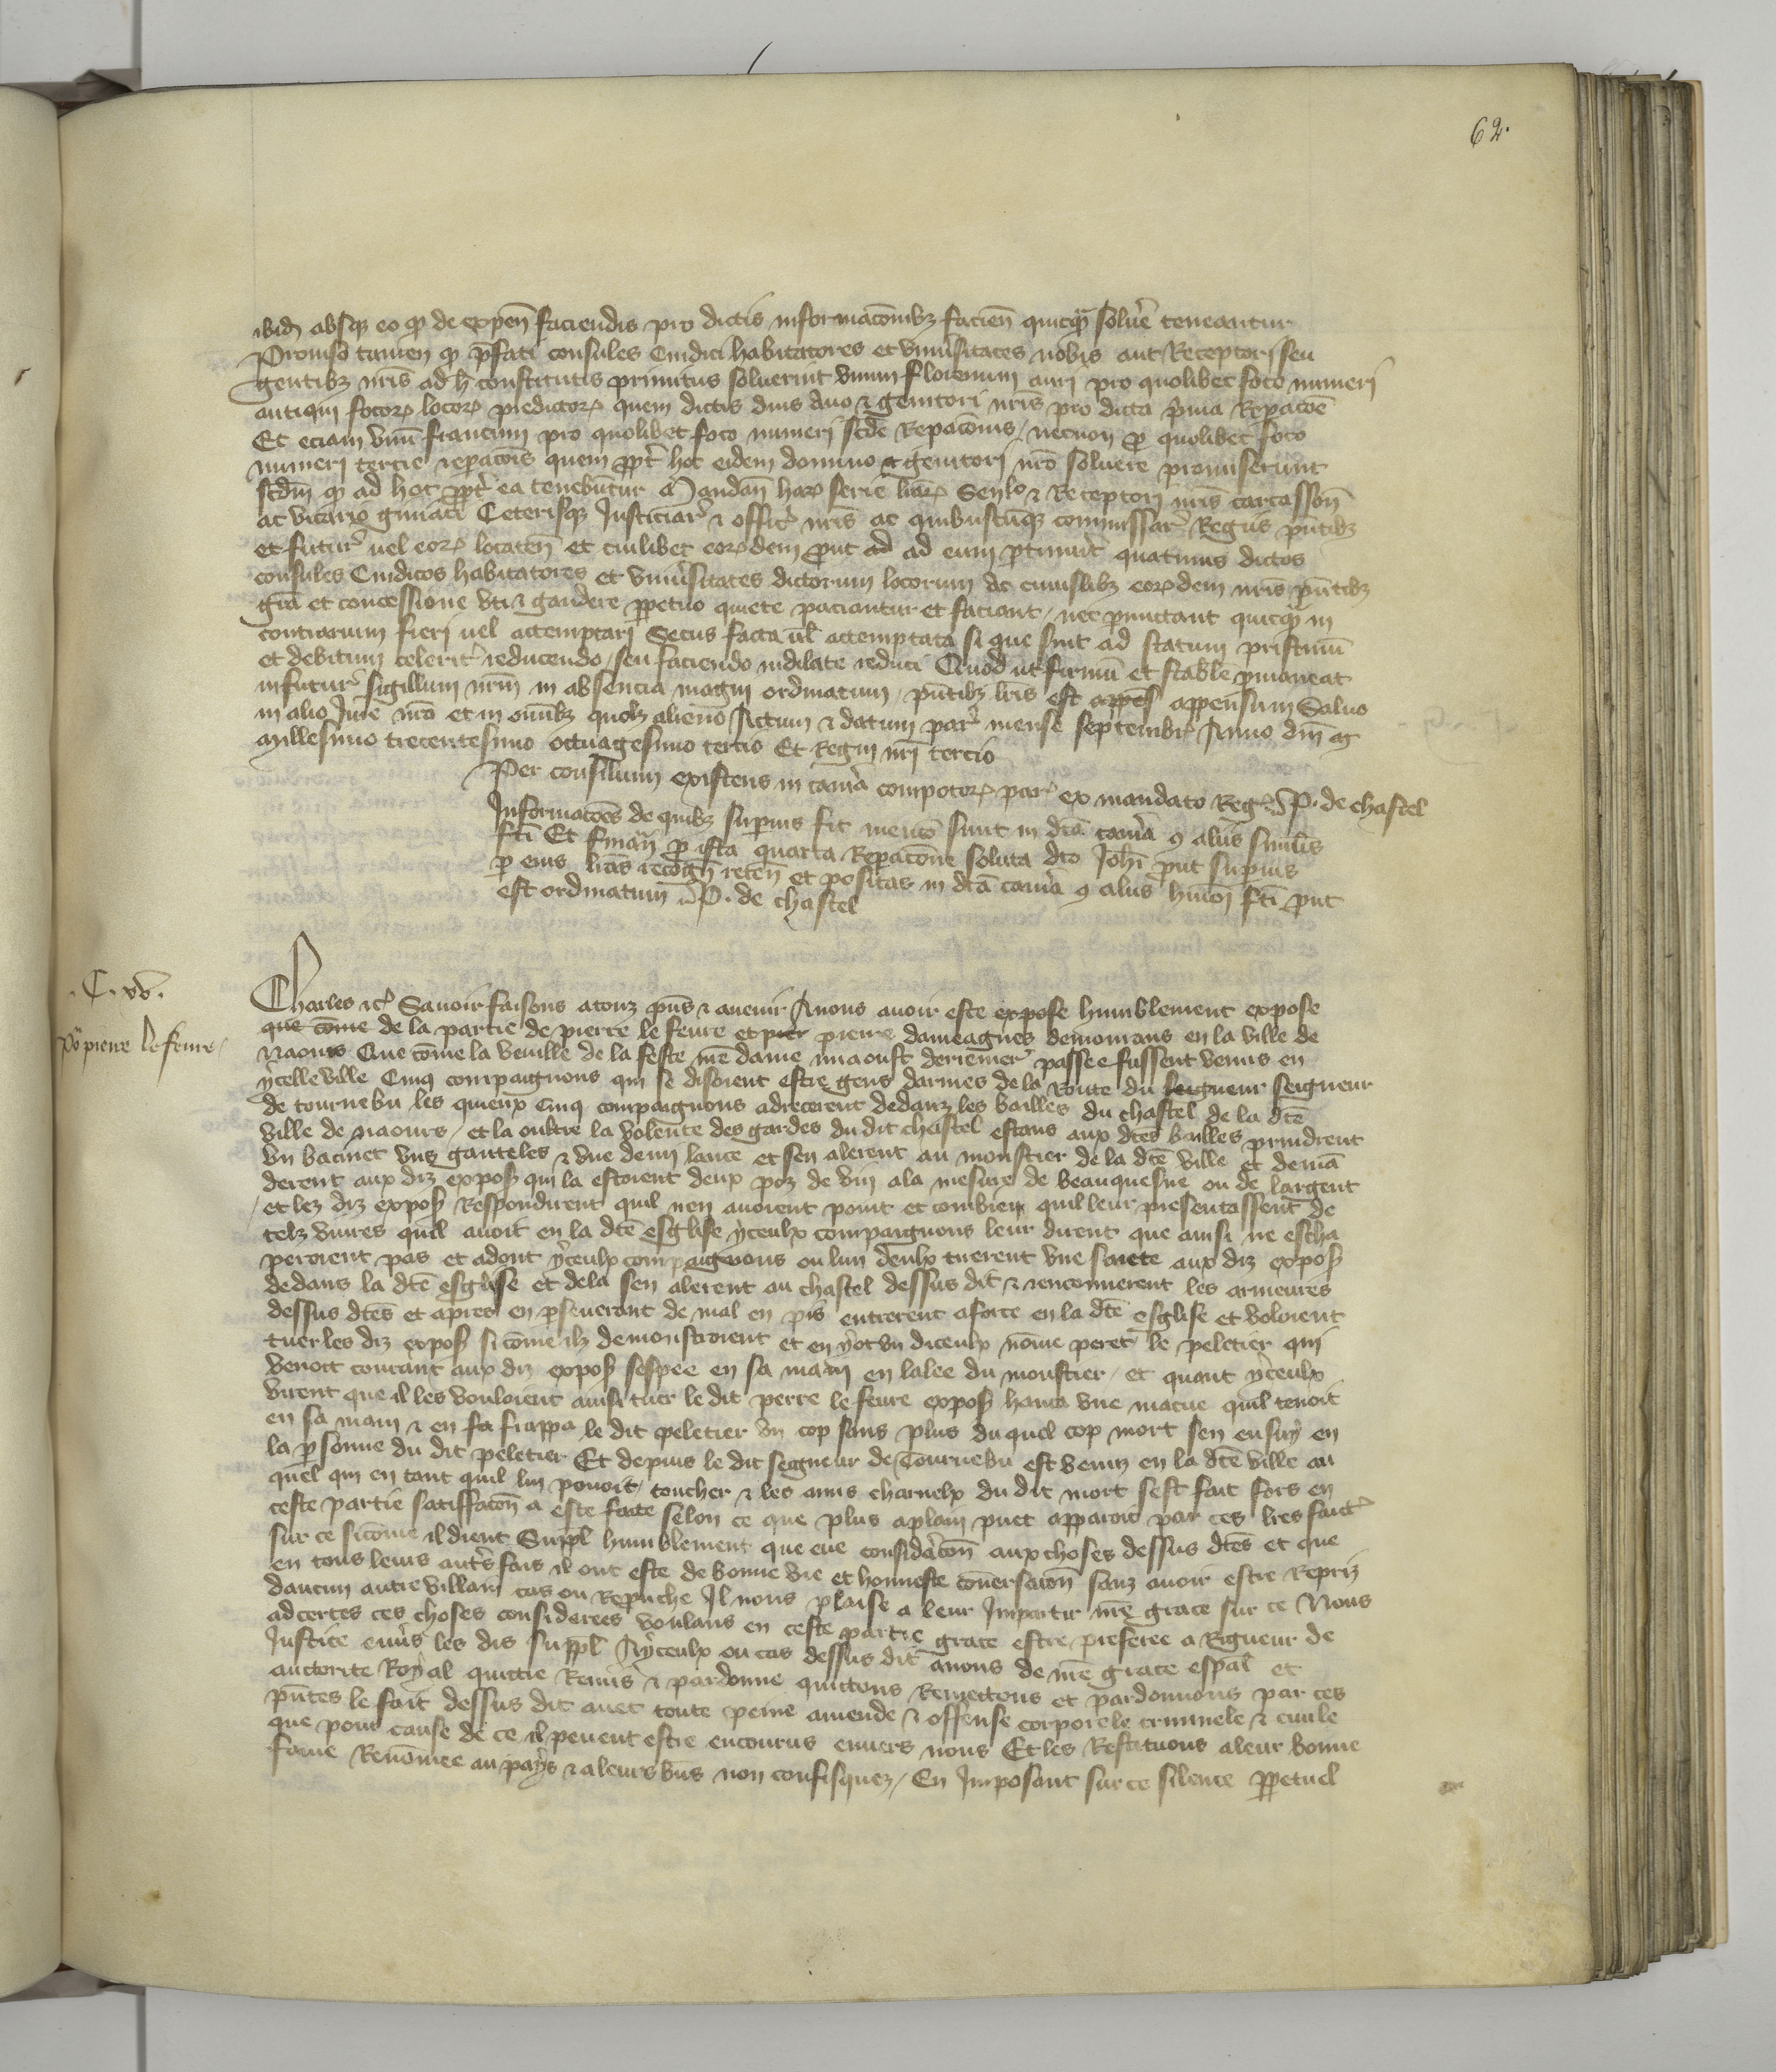 62.
ibid absque eo qꝫ de expeñ faciendis pro dictis informacōnibꝫ facien̄ quicqᷓ solue͛ teneantur
Prouiso tamen qꝫ p̄fati consules Cindici habitatores et vniu͛sitates nobis aut Receptori seu
gentibꝫ nr̄is ad h̄ constitutis primitus soluerint vnum florenum auri pro quolibet foco numeri
antiqui focorꝫ locorꝫ predictorꝫ quem dictis dn̄is Auo ⁊ genitori nr̄is pro dicta p͛ma Rep̱acōe
Et eciam vnū francum pro quolibet foco numeri scd̄e Rep̱acōnis / necnon ꝓ quolibet foco
numeri tercie rep̱acōis quem ꝓpt͛ hoc eidem domino ⁊ genitori nr̄o soluere promiserunt
scdm̄ qꝫ ad hoc ꝓpt͛ ea tenebūtur Mandan̄ harꝫ serie lr̄arꝫ Senllo ⁊ Receptori nr̄is carcasson̄
ac vicario giniaci Ceterisqꝫ Justiciar͛ ⁊ offic͛ nr̄is ac quibuscūqꝫ commissar͛ Regiis p̄ntibꝫ
et futur͛ uel eorꝫ locaten̄ et cuilibet eorꝫdem ꝓut ad ad eum p̱tinuit͛ quatinus dictos
consules Cindicos habitatores et vniu͛sitates dictorum locorum ac cuiuslibꝫ eorꝫdem nr̄is p̄ntibꝫ
gr̄a et concessione vti ⁊ gaudere ꝑpetuo quiete paciantur et faciant / nec p̱mittant quicqᷓ in
contrarium fieri uel attemptari Secus facta ul̄ attemptata si que sint ad statum pristinū
et debitum celerit͛ reducendo / seu faciendo indilate reduci Quod ut firmū et stabile p̱maneat
infutur͛ sigillum nr̄m in absencia magni ordinatum / p̄ntibꝫ lr̄is est appes appensum Saluo
in alio Jure nr̄o et in om̄ibꝫ quolꝫ alieno Actum ⁊ datum par͛ mense septembr͛ Anno dn̄i m
Millesimo trecentesimo octuagesimo tercio Et Regni nr̄i tercio
Per consilium existens in cam͛a compotorꝫ par͛ ex mandato Reg͛ P. de chastel
Informacōes de quibꝫ sup̱ius fit mencō sunt in dc̄a cam͛a ꝯ aliis similis
fc̄i Et finan̄ ꝓ ista quarta Rep̱acōne soluta dc̄o Joh̄i ꝓut sup̱ius
p̱ eius lr̄as recogn̄ reten̄ et positas in dc̄a cam͛a ꝯ aliis hm̄oi fc̄i ꝓut
est ordinatum P. de chastel
.C.xv.
Po͛ pierre le feure /
Charles ⁊c͛ Sauoir faisons atouz p̄ns ⁊ auenir Anous auoir este expose humblement expose
que cōme de la partie de pierre le feure et pier pierre dameagnes demourans en la ville de
Naours Que cōme la veuille de la feste nr̄e dame miaoust derrenier͛ passee fussent venus en
ycelle ville Cinq compaignons qui se disoient estre gens darmes de la Route du seigneur seigneur
de tournebu les quieux cinq compaignons adrecerent dedanz les bailles du chastel de la dc̄e
ville de Naours / et la oultre la volente des gardes du dit chastel estans aux dc̄es bailles prindrent
vn bacinet vns gantelés ⁊ vne demi lance et sen alerent au monstier de la dc̄e ville et demā
derent aux diz expos̄ qui la estoient deux poz de vin ala mesure de beauquesne ou de largent
/ et lez diz expos̄ Respondirent quil nen auoient point et combien quil leur presentassent de
telz viures quil auoit en la dc̄e esglise yceulx compaignons leur dirent que ainsi ne escha
peroient pas et adont yceulx compaignons ou lun deulx tirerent vne saiete aux diz expos̄
dedans la dc̄e esglise et dela sen alerent au chastel dessus dit ⁊ renconuerent les armeures
dessus dc̄es et apres en p̱seuerant de mal en pis entrerent aforce en la dc̄e esglise et voloient
tuer les diz expos̄ si cōme ilz demonstroient et en y ot vn diceulx nōme peret le peletier qui
venoit courant aux diz expos̄ sespee en sa main en lalee du monstier / et quant yceulx
virent que il les vouloient ainsi tuer le dit perre le feure expos̄ hauca vne macue quil tenoit
en sa main ⁊ en fa frappa le dit peletier vn cop sans plus du quel cop mort sen ensuy en
la p̱sonne du dit peletier Et depuis le dit segneur de Tournebu est venu en la dc̄e ville au
quel qui en tant quil lui pouoit / toucher ⁊ les amis charnelx du dit mort sest fait fors en
ceste partie satiffacōn a este faite selon ce que plus aplain puet apparoir par ces lr̄es faict͛
sur ce sicōme il dient Suppl̄ humblement que eue consid͛acōn aux choses dessus dc̄es et que
en tous leurs autr͛s fais il ont este de bonne vie et honneste cōuersacōn sanz auoir estre Repriz
daucun autre villain cas ou Reprouche Il nous plaise a leur Impartir nr̄e grace sur ce Nous
adcertes ces choses considerees voulans en ceste partie grace estre preferee a Rigueur de
Justice enu͛s les dis suppl̄ Ayceulx ou cas dessus dit auons de nr̄e grace esp̄al et
auctorite Royal quittie Remis ⁊ pardonne quittons Remettons et pardonnons par ces
p̄ntes le fait dessus dit auec toute peine amende ⁊ offense corporele criminele ⁊ ciuile
que pour cause de ce il peuent estre encourus enuers nous Et les Restituons aleur bonne
fame Renōmee au pays ⁊ aleurs bn̄s non confisquez / En Imposant sur ce silence ꝑpetuel